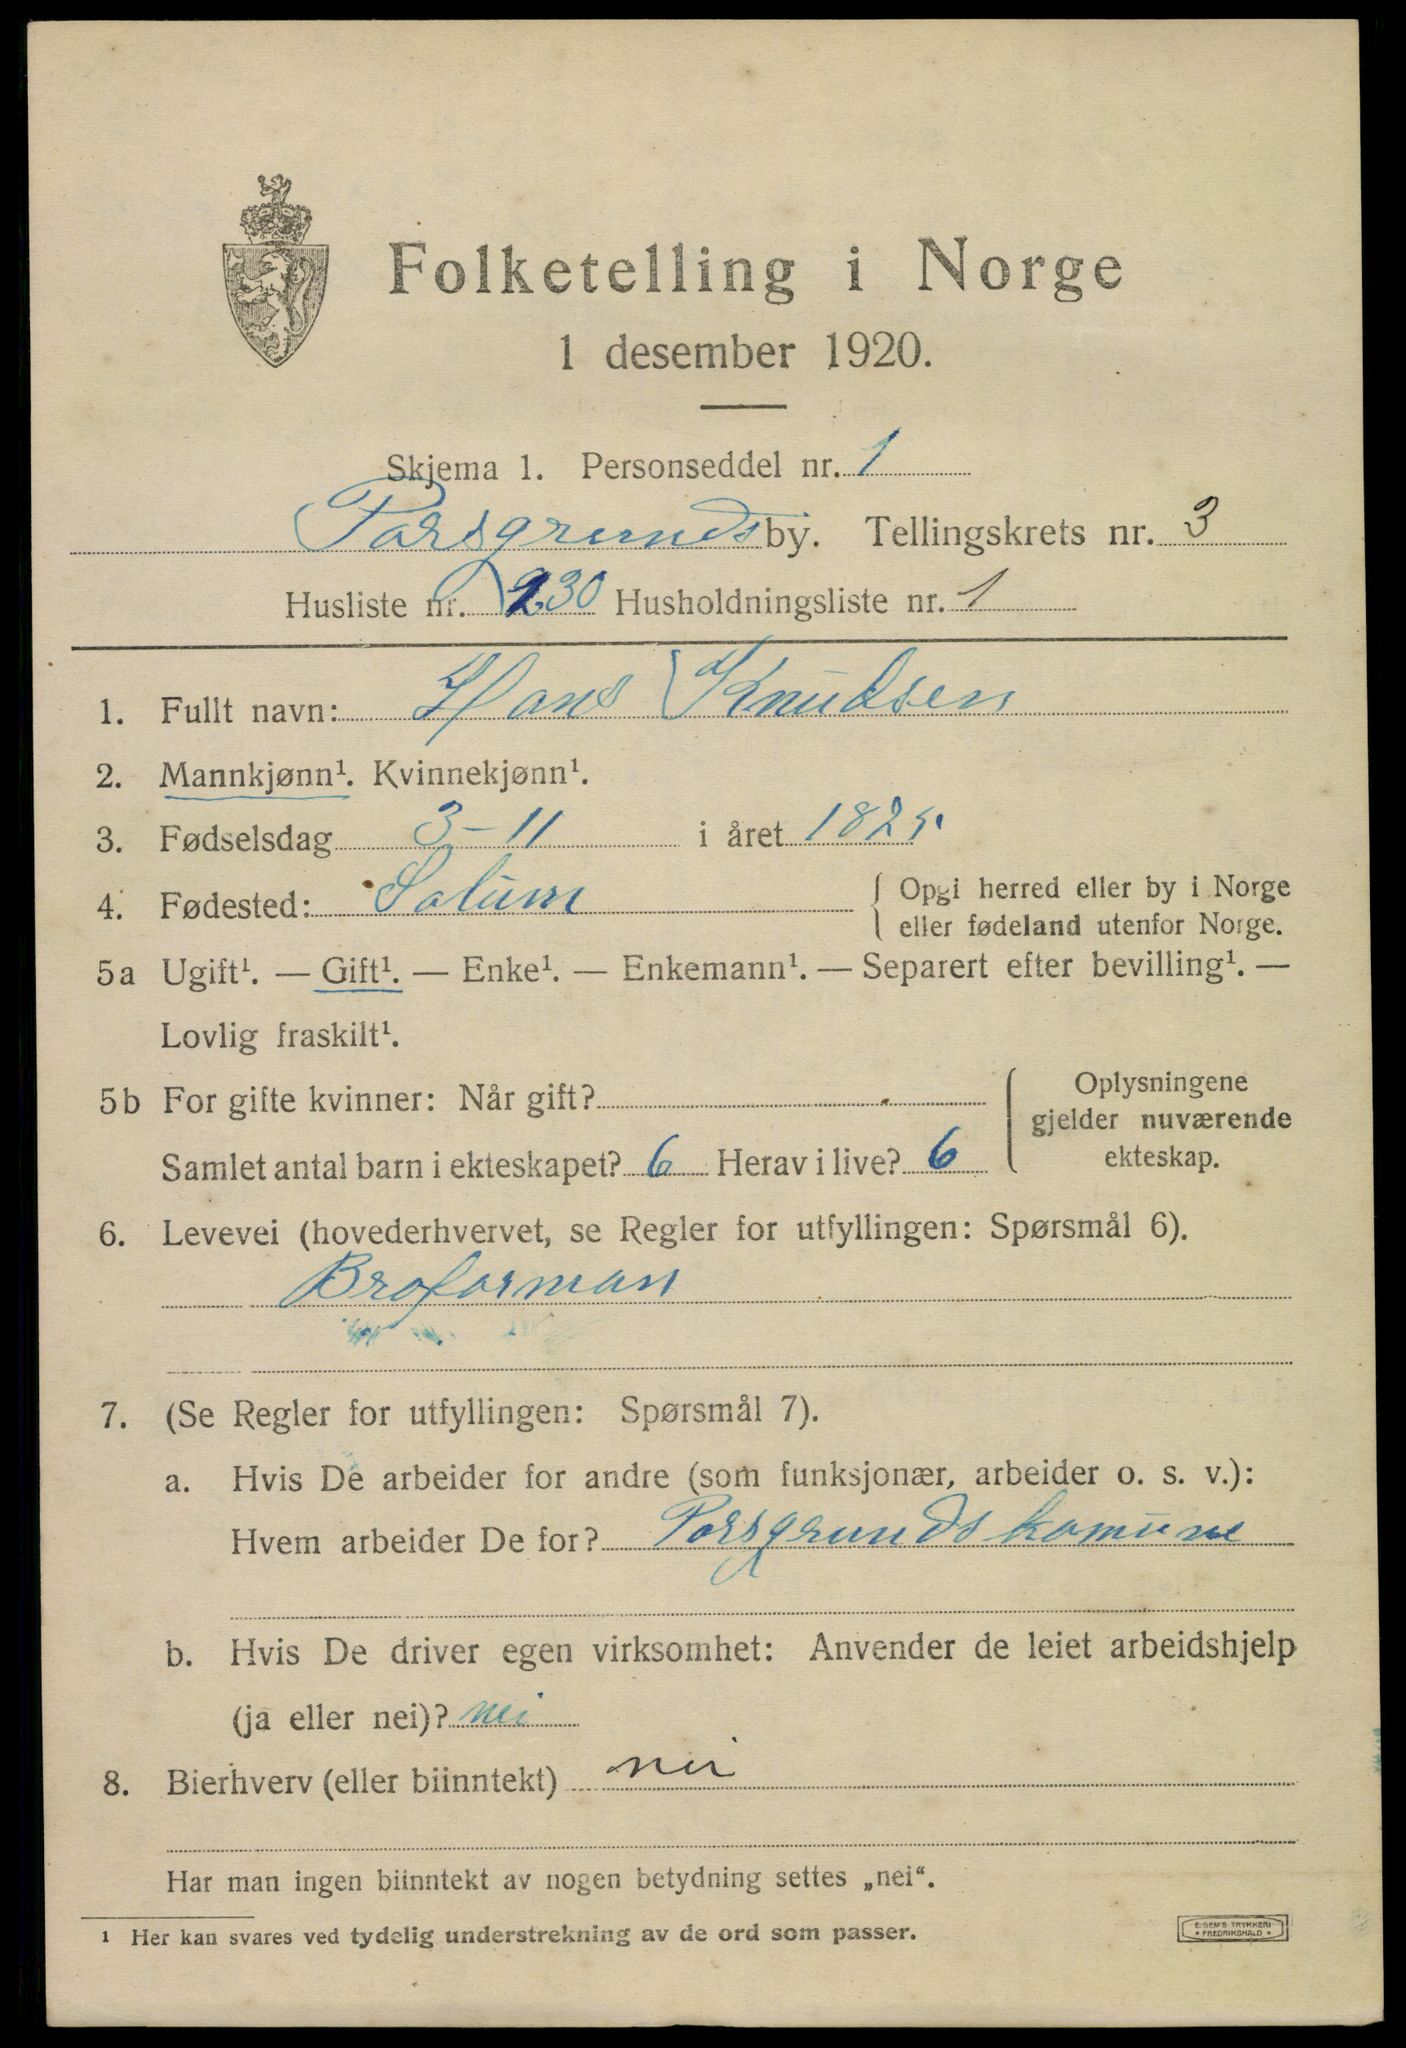 Folketelling i Norge
1 desember 1920.
Skjema 1. Personseddel nr. 1
Porsgrunds by. Tellingskrets nr. 3
Husliste nr. 230 Husholdningsliste nr. 1
1. Fullt navn: Hans Knudsen
2. Mannkjønn¹. Kvinnekjønn¹.
3. Fødselsdag 3-11 i året
4. Fødested: Solum { Opgi herred eller by i Norge
eller fødeland utenfor Norge.
5a Ugift¹. — Gift¹. — Enke¹. — Enkemann¹. — Separert efter bevilling¹. —
Lovlig fraskilt¹.
5b For gifte kvinner: Når gift?
Samlet antal barn i ekteskapet? 6 Herav i live? 6
Oplysningene
gjelder nuværende
ekteskap.
6. Levevei (hovederhvervet, se Regler for utfyllingen: Spørsmål 6).
Broforman
7. (Se Regler for utfyllingen: Spørsmål 7).
a. Hvis De arbeider for andre (som funksjonær, arbeider o. s. v.):
Hvem arbeider De for? Porsgrunds komune
b. Hvis De driver egen virksomhet: Anvender de leiet arbeidshjelp
(ja eller nei)? nei
8. Bierhverv (eller biinntekt) nei
Har man ingen biinntekt av nogen betydning settes „nei“.
1 Her kan svares ved tydelig understrekning av de ord som passer.
E. SEM'S TRYKKERI
• FREDRIKSHALD •